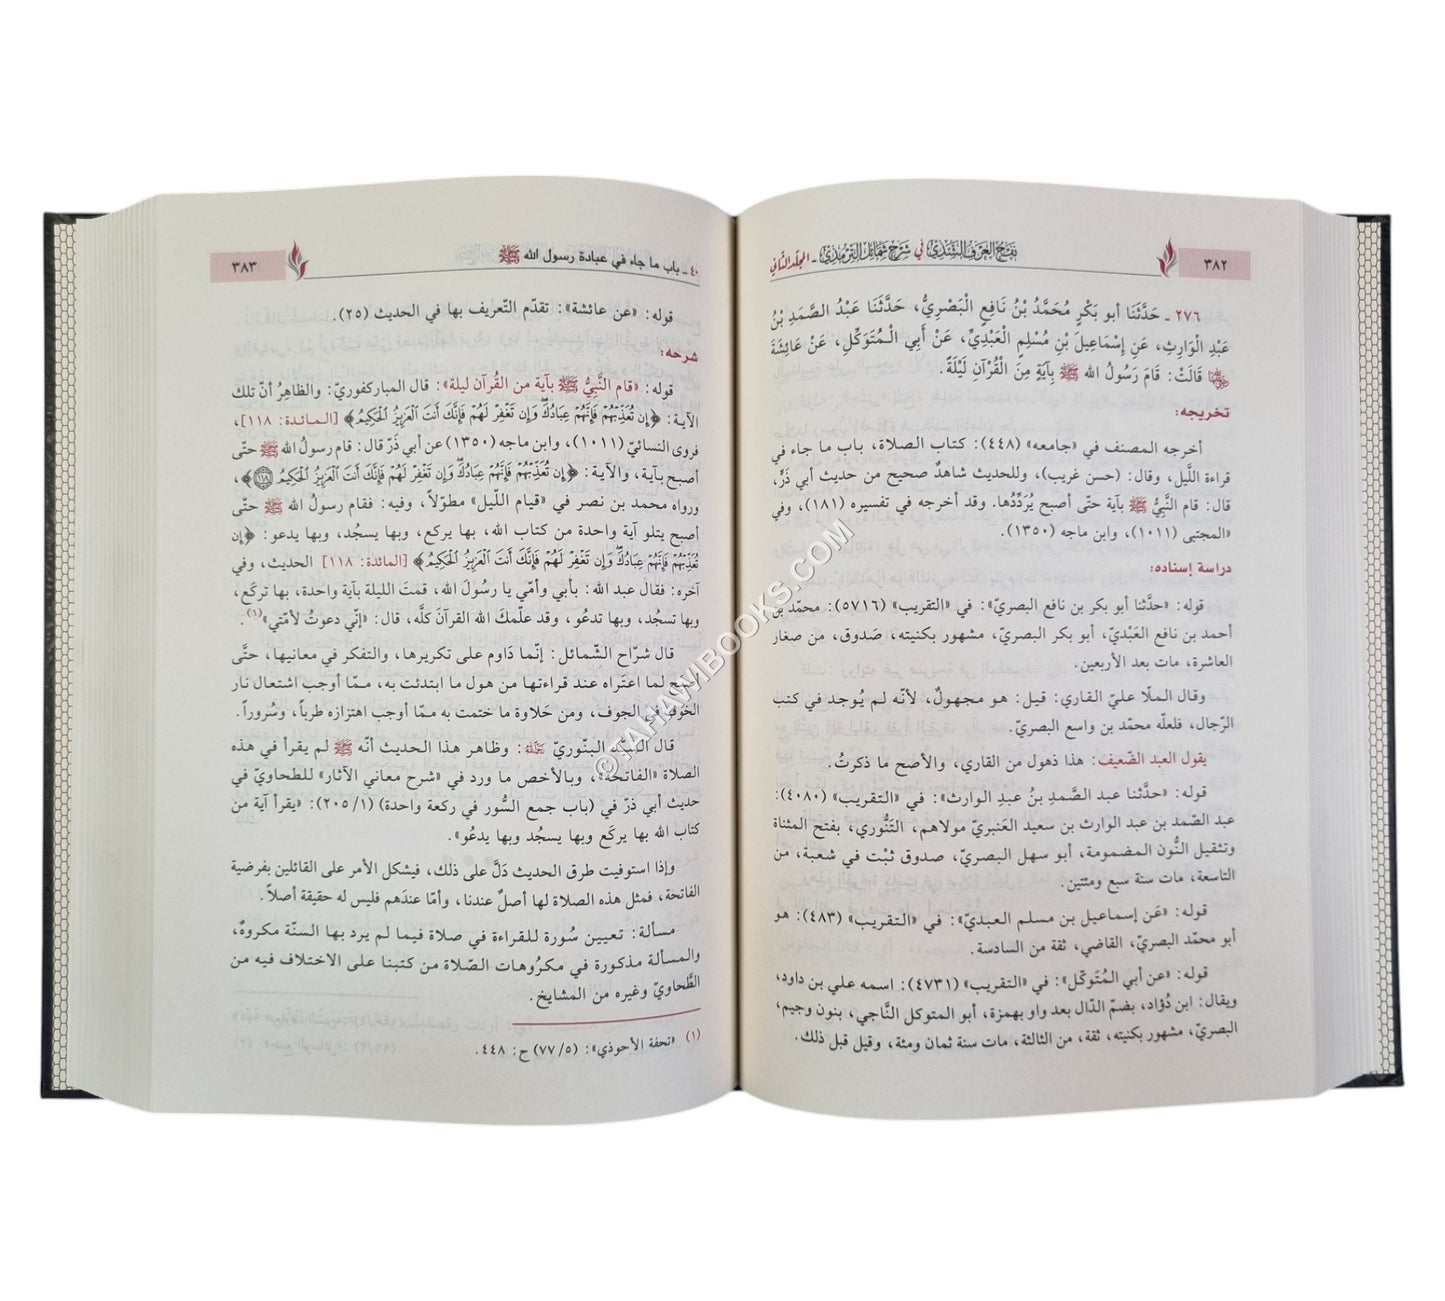 ٣٨٢
نفح العرف الشذي في شرح شمائل الترمذي ـ المجلد الثاني
٢٧٦ ـ حَدَّثَنَا أبو بَكْرٍ مُحَمَّدُ بْنُ نَافِعٍ الْبَصْرِيُّ، حَدَّثَنَا عَبْدُ الصَّمَدِ بْنُ
عَبْدِ الْوَارِثِ، عَنِ إِسْمَاعِيلَ بْنِ مُسْلِمٍ الْعَبْدِيِّ، عَنْ أَبِي الْمُتَوَكِّلِ، عَنْ عَائِشَةَ
رضي الله عنها قَالَتْ: قَامَ رَسُولُ الله ﷺ بِآيَةٍ مِنَ الْقُرْآنِ لَيْلَةً.
تخريجه:
أخرجه المصنف في «جامعه» (٤٤٨): كتاب الصلاة، باب ما جاء في
قراءة اللَّيل، وقال: (حسن غريب)، وللحديث شاهدٌ صحيح من حديث أبي ذَرٍّ،
قال: قام النَّبيُّ ﷺ بآية حتى أصبح يُرَدِّدُها. وقد أخرجه في تفسيره (١٨١)، وفي
«المجتبى (١٠١١)، وابن ماجه (١٣٥٠).
دراسة إسناده:
قوله: «حدَّثنا أبو بكر بن نافع البصريّ»: في «التقريب» (٥٧١٦): محمّد بن
أحمد بن نافع العَبْديّ، أبو بكر البصريّ، مشهور بكنيته، صَدوق، من صغار
العاشرة، مات بعد الأربعين.
وقال الملّا عليّ القاري: قيل: هو مجهولٌ، لأنّه لم يُوجد في كتب
الرّجال، فلعلّه محمّد بن واسع البصريّ.
يقول العبد الضّعيف: هذا ذهول من القاري، والأصح ما ذكرتُ.
قوله: «حدَّثنا عبد الصَّمدِ بنُ عبدِ الوارث»: في «التقريب» (٤٠٨٠):
عبد الصّمد بن عبد الوارث بن سعيد العَنبريّ مولاهم، التَّنُّوري، بفتح المثناة
وتثقيل النُّون المضمومة، أبو سهل البصريّ، صدوق ثبْت في شعبة، من
التاسعة، مات سنة سبع ومئتين.
قوله: «عَن إسماعيل بن مسلم العبديّ»: في «التقريب» (٤٨٣): هو
أبو محمّد البصريّ، القاضي، ثقة من السادسة.
قوله: «عن أبي المُتَوكّل»: في «التقريب» (٤٧٣١): اسمه علي بن داود،
ويقال: ابن دُؤاد، بضمّ الدّال بعد واو بهمزة، أبو المتوكل النَّاجي، بنون وجيم،
البصريّ، مشهور بكنيته، ثقة، من الثالثة، مات سنة ثمان ومئة، وقيل قبل ذلك.
٤٠ ـ باب ما جاء في عبادة رسول الله ﷺ
٣٨٣
قوله: «عن عائشة»: تقدّم التّعريف بها في الحديث (٢٥).
شرحه:
قوله: «قام النَّبيُّ ﷺ بآية من القُرآن ليلة»: قال المباركفوريّ: والظاهِرُ أنّ تلك
الآية: ﴿إِن تُعَذِّبْهُمْ فَإِنَّهُمْ عِبَادُكَ وَإِن تَغْفِرْ لَهُمْ فَإِنَّكَ أَنتَ الْعَزِيزُ الْحَكِيمُ﴾ [المائدة: ١١٨]،
فروى النسائيّ (١٠١١)، وابن ماجه (١٣٥٠) عن أبي ذَرّ قال: قام رسولُ الله ﷺ حتّى
أصبح بآية، والآية: ﴿إِن تُعَذِّبْهُمْ فَإِنَّهُمْ عِبَادُكَ وَإِن تَغْفِرْ لَهُمْ فَإِنَّكَ أَنتَ الْعَزِيزُ الْحَكِيمُ ١١٨﴾،
ورواه محمد بن نصر في «قيام اللّيل» مطوّلاً، وفيه: فقام رسولُ الله ﷺ حتّى
أصبح يتلو آية واحدة من كتاب الله، بها يركع، وبها يسجُد، وبها يدعو: ﴿إِن
تُعَذِّبْهُمْ فَإِنَّهُمْ عِبَادُكَ وَإِن تَغْفِرْ لَهُمْ فَإِنَّكَ أَنتَ الْعَزِيزُ الْحَكِيمُ﴾ [المائدة: ١١٨] الحديث، وفي
آخره: فقال عبد الله: بأبي وأمّي يا رسُولَ الله، قمتَ الليلة بآية واحدة، بها تركَع،
وبها تسجُد، وبها تدعُو، وقد علّمكَ الله القرآنَ كلَّه، قال: «إنّي دعوتُ لأمّتي»(١)
قال شرّاح الشّمائل: إنّما دَاوم على تكريرها، والتفكر في معانيها، حتَّى
أصبح لما اعتَراه عند قراءتها من هول ما ابتدئت به، ممّا أوجب اشتعال نار
الخوف في الجوف، ومن حَلاوة ما ختمت به ممّا أوجب اهتزازه طرباً، وسُروراً.
قال السّيّد البنّوريّ رحمه الله: وظاهر هذا الحديث أنّه ﷺ لم يقرأ في هذه
الصلاة «الفاتحة»، وبالأخص ما ورد في «شرح معاني الآثار» للطحاويّ في
حديث أبي ذرّ في (باب جمع السُّور في ركعة واحدة) (٢٠٥/١): «يقرأ آية من
كتاب الله بها يركَع وبها يسجُد وبها يدعُو».
وإذا استوفيت طرق الحديث دَلَّ على ذلك، فيشكل الأمر على القائلين بفرضية
الفاتحة، فمثل هذه الصلاة لها أصلٌ عندنا، وأمّا عندَهم فليس له حقيقة أصلاً.
مسألة: تعيين سُورة للقراءة في صلاة فيما لم يرد بها السنّة مكروهٌ،
والمسألة مذكورة في مكرُوهات الصّلاة من كتبنا على الاختلاف فيه من
الطَّحاويّ وغيره من المشايخ.
(١) «تحفة الأحوذي»: (٧٧/٥) ح: ٤٤٨.
©TAHAWIBOOKS.COM